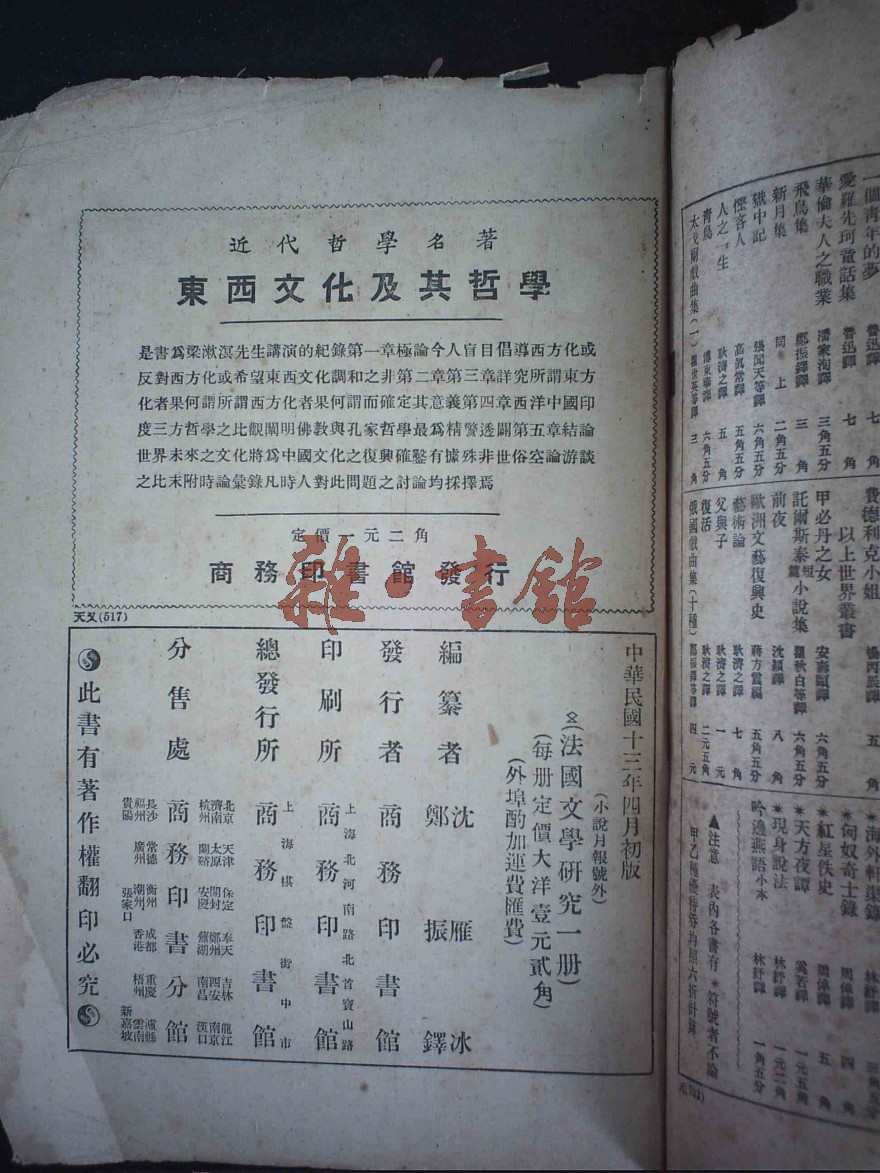 近代哲學名著
東西文化及其哲學
是書爲梁漱溟先生講演的紀錄第一章極論今人盲目倡導西方化或
反對西方化或希望東西文化調和之非第二章第三章詳究所謂東方
化者果何謂所謂西方化者果何謂而確定其意義第四章西洋中國印
度三方哲學之比觀闡明佛教與孔家哲學最爲精警透闢第五章結論
世界未來之文化將爲中國文化之復興確鑿有據殊非世俗空論游談
之比末附時論彙錄凡時人對此問題之討論均採擇焉
定價一元二角
商務印書館發行
雜·書館
(517)
中華民國十三年四月初版
(小說月報號外)
(法國文學研究一册)
(每册定價大洋壹元貳角)
(外埠酌加運費匯費)
編纂者 沈雁冰 鄭振鐸
發行者 商務印書館
印刷所 上海北河南路北首寶山路 商務印書館
總發行所 上海棋盤街中市 商務印書館
分售處 商務印書分館
北京 天津 保定 奉天 吉林 龍江
濟南 太原 開封 鄭州 西安 南京
杭州 蘭谿 安慶 蕪湖 南昌 漢口
長沙 常德 衡州 成都 重慶 瀘縣
福州 廣州 潮州 香港 梧州 雲南
貴陽 張家口 新嘉坡
此書有著作權翻印必究
一個青年的夢 魯迅譯 七角
愛羅先珂童話集 魯迅譯 七角
華倫夫人之職業 潘家洵譯 三角五分
飛鳥集 鄭振鐸譯 三角
新月集 同上 二角五分
獄中記 張聞天等譯 六角五分
慳吝人 高眞常譯 五角
人之一生 耿濟之譯 五角
青鳥 傅東華譯 六角五分
太戈爾戲曲集(一) 瞿世英等譯 三角
費德利克小姐 楊丙辰譯 五角
以上世界叢書
甲必丹之女 安壽頤譯 六角五分
託爾斯泰短篇小說集 瞿秋白等譯 六角五分
前夜 沈穎譯 八角
歐洲文藝復興史 蔣方震編 五角五分
藝術論 耿濟之譯 七角
父與子 耿濟之譯 一元
復活 耿濟之譯 二元五角
俄國戲曲集(十種) 鄭振鐸等譯 四元
*海外軒渠錄 林紓譯 三角五分
*匈奴奇士錄 周倬譯 四角
*紅星佚史 周倬譯 五角
*天方夜譚 奚若譯 一元五角
*現身說法 林紓譯 一元二角
吟邊燕語小本 林紓譯 一角五分
▲注意 表內各書有*符號者不論
甲乙種優待劵均照六折計算